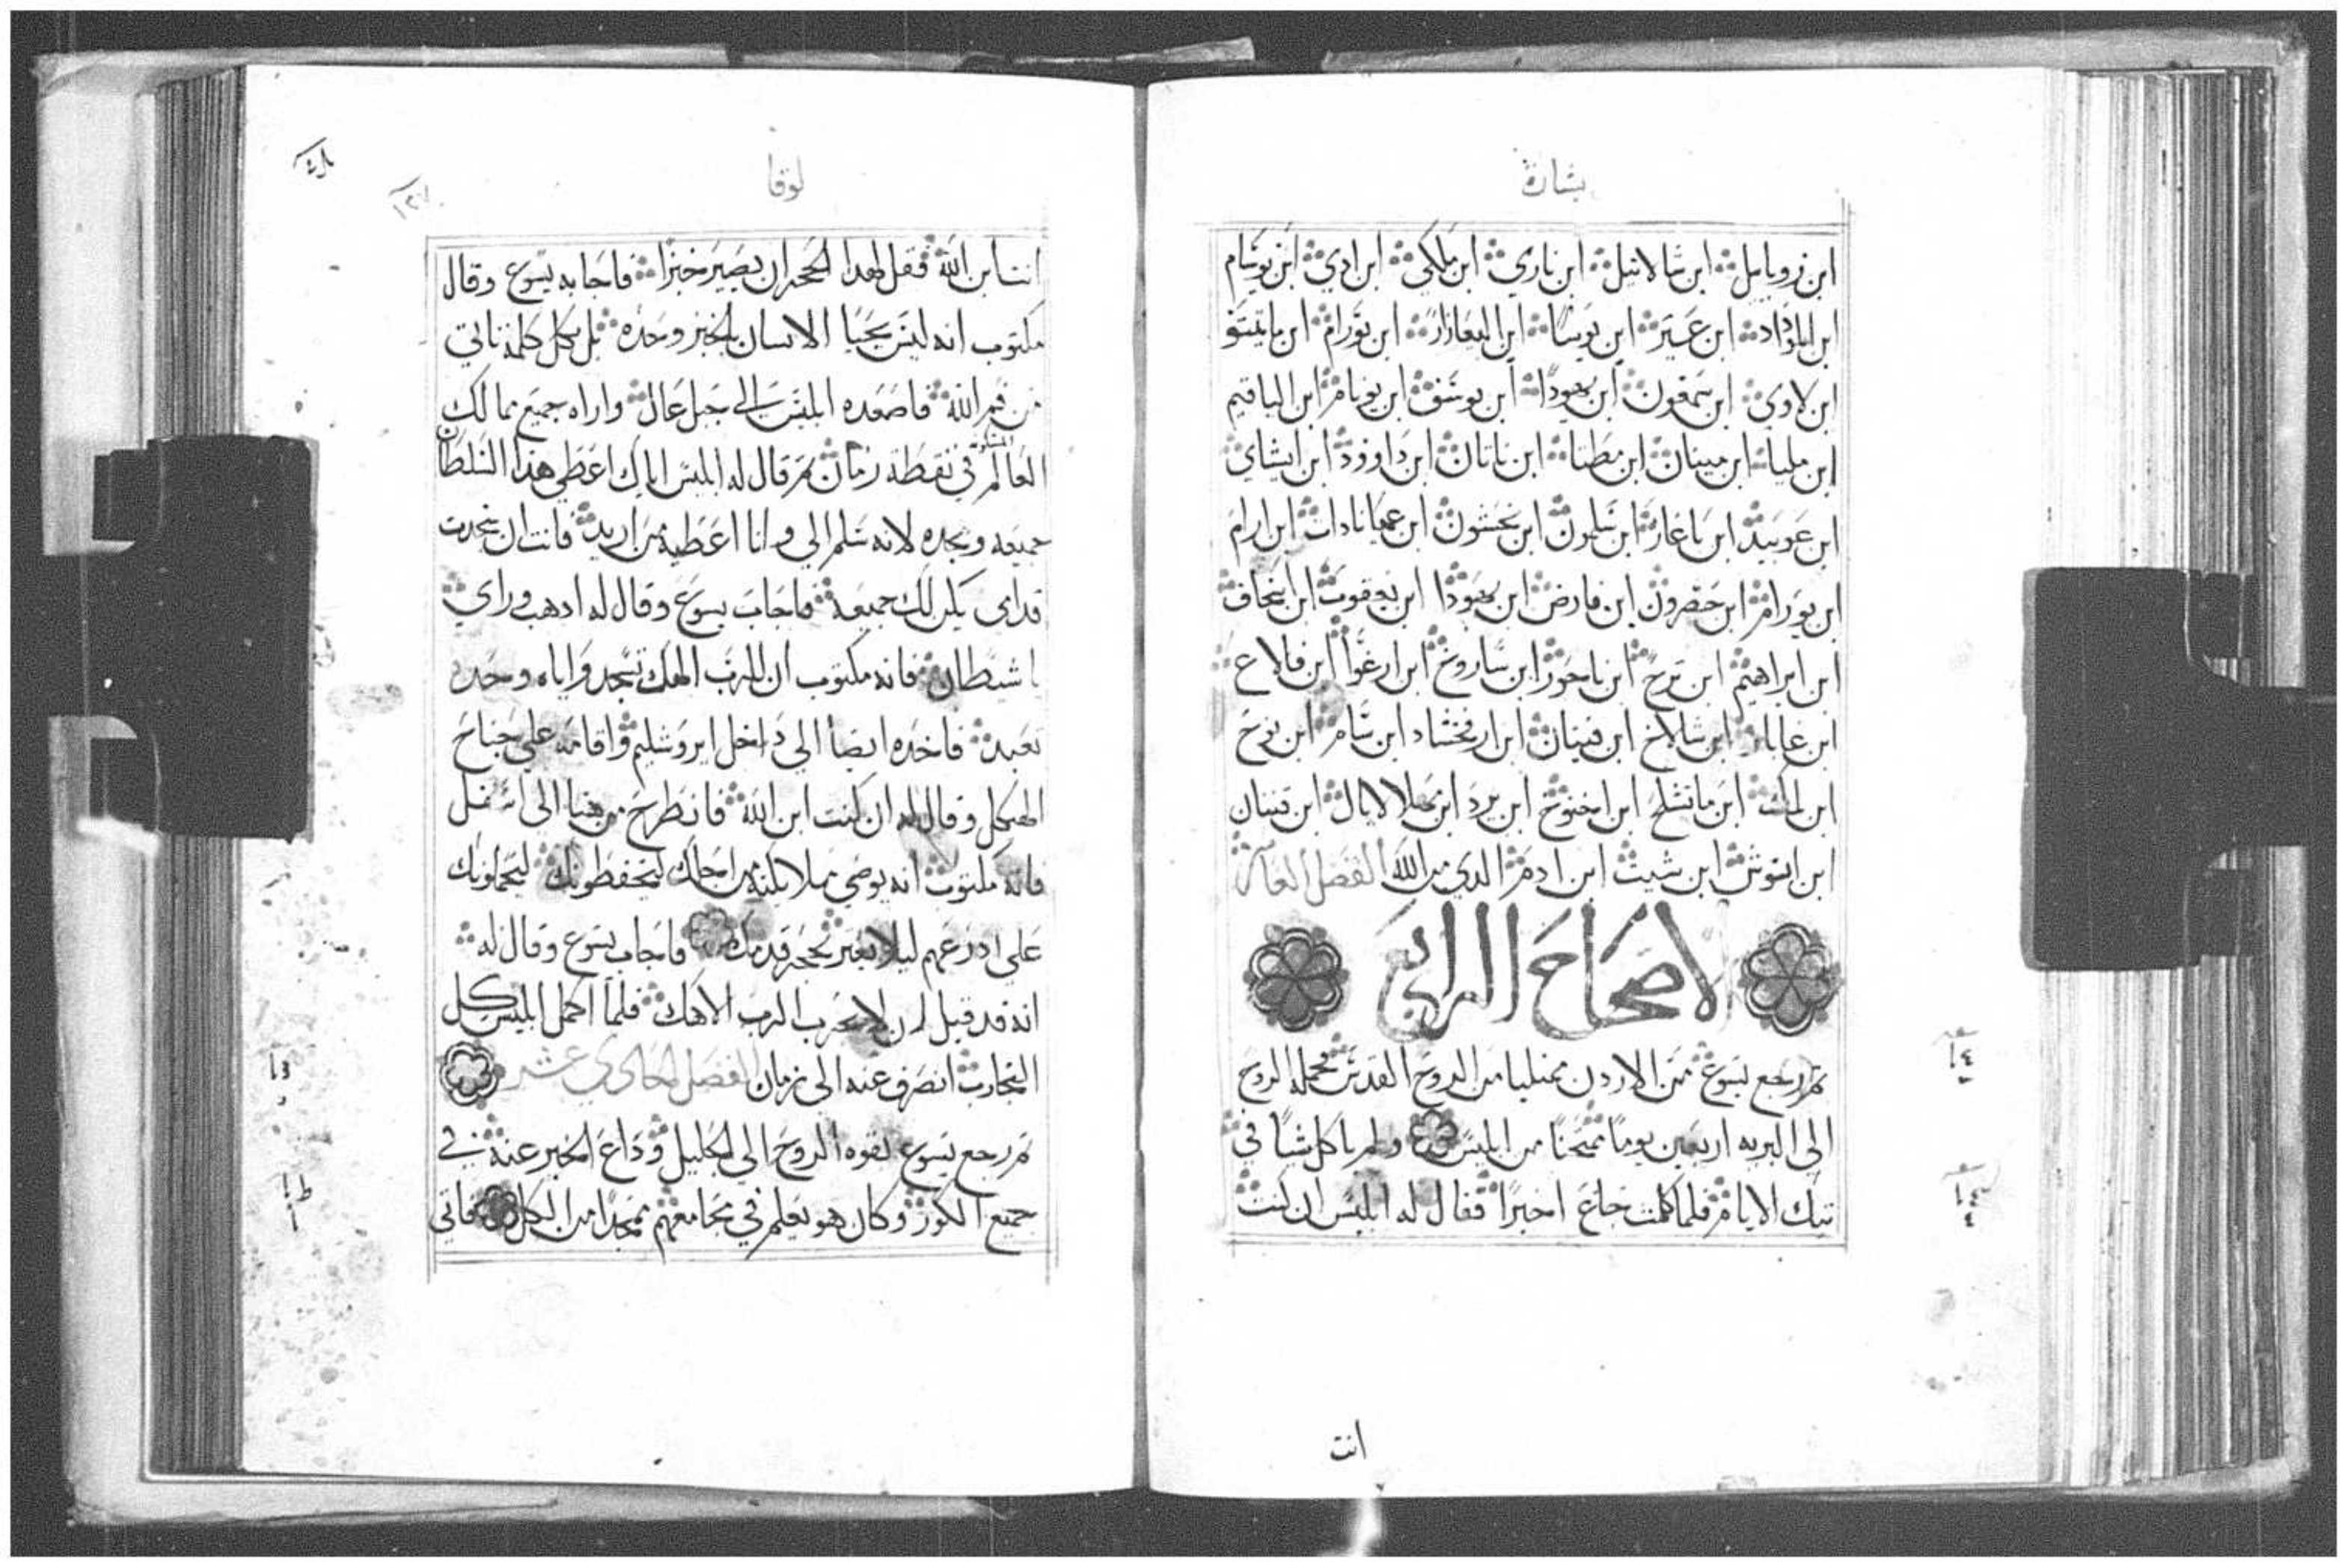 بشارة
ابن زروبابيل ابن شالاتيل ابن ناري ابن ملكي ابن ادي ابن يوسام
ابن الموداد ابن عير ابن يوسا ابن اليعازار ابن يورام ابن ماتيتو
ابن لاوي ابن سمعون ابن يهودا ابن يوسف ابن يونام ابن الياقيم
ابن مليا ابن مينان ابن مطتا ابن ناتان ابن داوود ابن ايشاي
ابن عوبيد ابن باغاز ابن سلمون ابن نحشون ابن عميناداب ابن ارام
ابن يورام ابن حصرون ابن فارض ابن يهودا ابن يعقوب ابن اسحاق
ابن ابراهيم ابن ترح ابن ناحور ابن ساروخ ابن ارغوا ابن فالاع
ابن عابار ابن شالاخ ابن قينان ابن ارفخشاد ابن سام ابن نوح
ابن لمك ابن ماتشلح ابن اخنوخ ابن يرد ابن مهلالايال ابن قينان
ابن انوش ابن شيث ابن ادم الدي من الله الفصل العاشر
الاصحاح الرابع
ثم رجع يسوع من الاردن ممتليا من الروح القدس فحمله الروح
الى البريه اربعين يوما ممتحنا من ابليس ولم ياكل شيا في
تيك الايام فلما كملت جاع اخيرا فقال له ابليس ان كنت
انت
لوقا
١٢٧
انت ابن الله فقل لهدا الحجر ان يصير خبزا فاجابه يسوع وقال
مكتوب انه ليس يحيا الانسان بالخبز وحده بل بكل كلمة تاتي
من فم الله فاصعده ابليس الى جبل عال واراه جميع ممالك
العالم في نقطة زمان ثم قال له ابليس اياك اعطي هذا السلطان
جميعه ومجده لانه سلم الي وانا اعطيه من اريد فانت ان سجدت
قدامي يكن لك جميعه فاجاب يسوع وقال له ادهب وراي
يا شيطان فانه مكتوب ان للرب الهك تسجد واياه وحده
تعبد فاخده ايضا الى داخل ايروشليم واقامه على جناح
الهيكل وقال له ان كنت ابن الله فانطرح من هنا الى اسفل
فانه مكتوب انه يوصي ملايكته من اجلك ليحفظونك ليحملونك
على ادرعهم ليلا تعتر بحجر قدمك فاجاب يسوع وقال له
انه قد قيل ان لا تجرب الرب الاهك فلما اكمل ابليس كل
التجارب انصرف عنه الى زمان الفصل الحادي عشر
ثم رجع يسوع بقوه الروح الى الجليل وداع الخبر عنه في
جميع الكور وكان هو يعلم في مجامعهم ممجدا من الكل فاتى